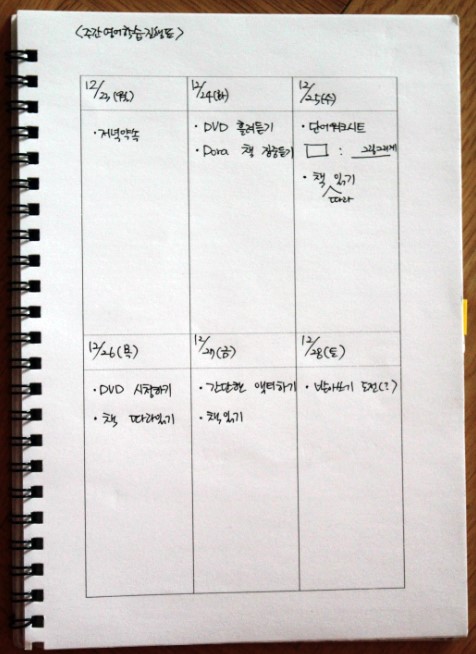 <주간영어학습진행표>
12/23(월)
12/24(화)
12/25(수)
·저녁약속
·DVD 흘려듣기
·Dora 책 집중듣기
·단어워크시트
:
·책 읽기
따라
12/26(목)
12/27(금)
12/28(토)
·DVD 시청하기
·책 따라읽기
·간단한 액티하기
·책읽기
·받아쓰기 도전(?)